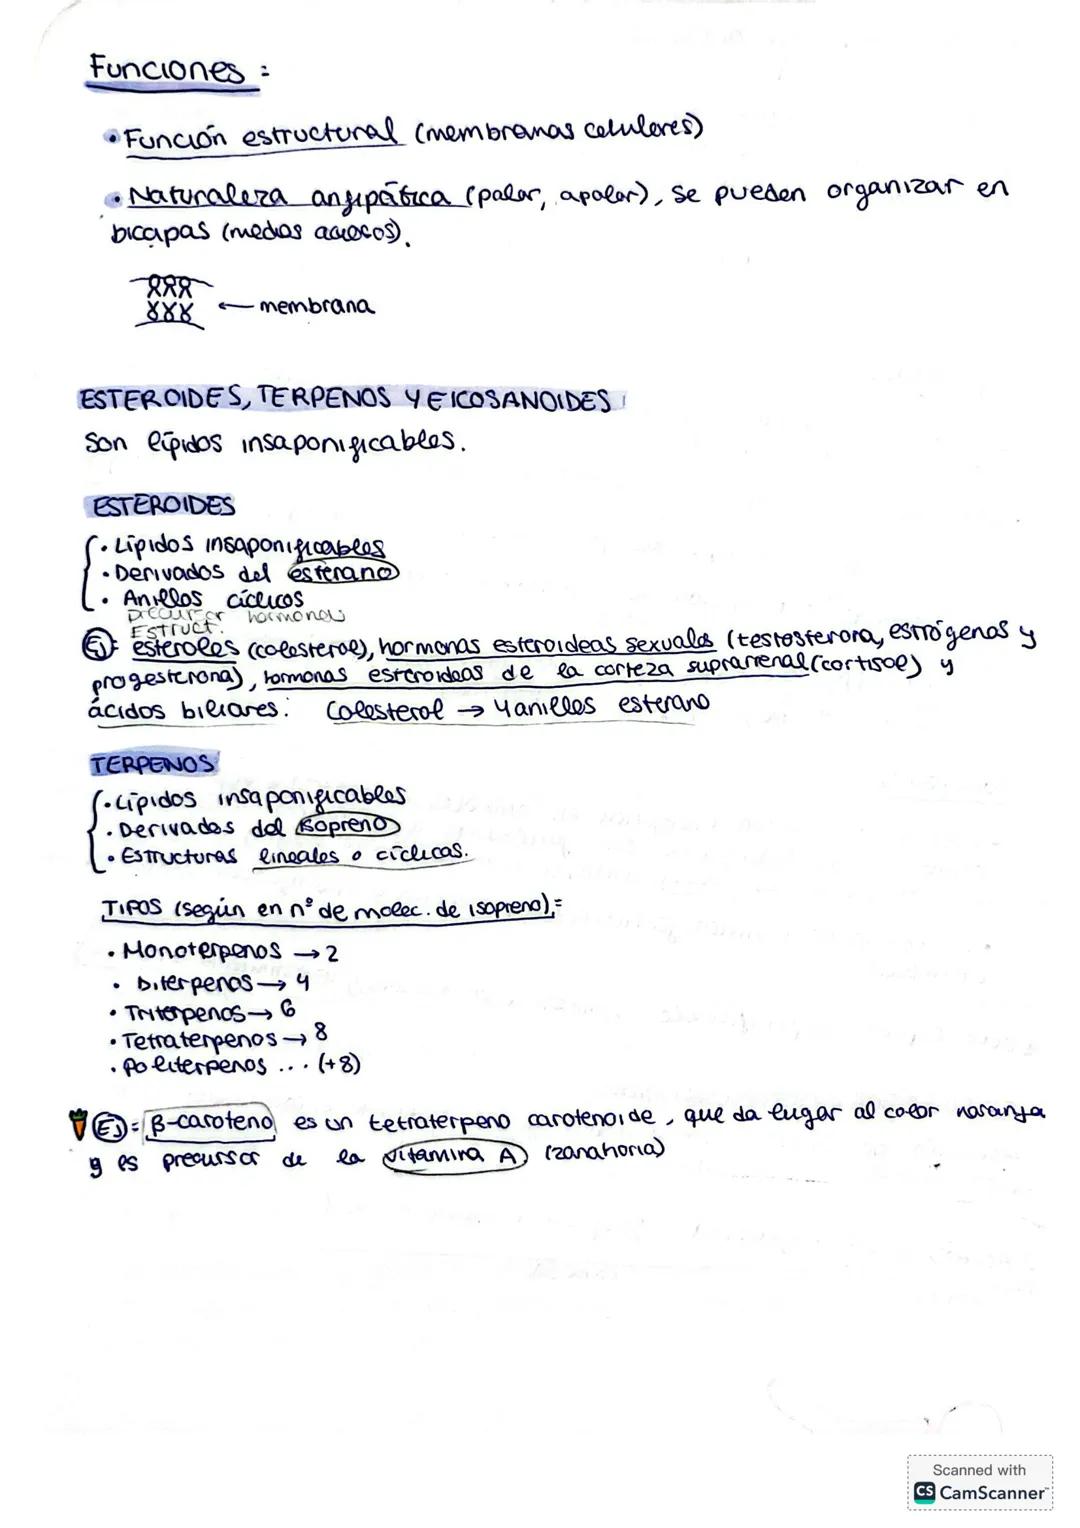 Funciones:
• Función estructural (membranas celulares)
• Naturaleza anfipática (polar, apolar), se pueden organizar en
bicapas (medios acuosos).
← membrana
ESTEROIDES, TERPENOS Y EICOSANOIDES
Son lípidos insaponificables.
ESTEROIDES
• Lípidos insaponificables
• Derivados del esterano
• Anillos cíclicos
precursor hormonas
Estruct.
Ej: esteroles (colesterol), hormonas esteroideas sexuales (testosterona, estrógenos y
progesterona), hormonas esteroideas de la corteza suprarrenal (cortisol) y
ácidos biliares. Colesterol → 4 anillos esterano
TERPENOS
• Lípidos insaponificables
• Derivados del isopreno
• Estructuras lineales o cíclicas.
TIPOS (según en nº de molec. de isopreno):
• Monoterpenos → 2
• Diterpenos → 4
• Triterpenos → 6
• Tetraterpenos → 8
• Politerpenos ... (+8)
Ej: β-caroteno es un tetraterpeno carotenoide, que da lugar al color naranja
y es precursor de la vitamina A (zanahoria)
Scanned with
CS CamScanner